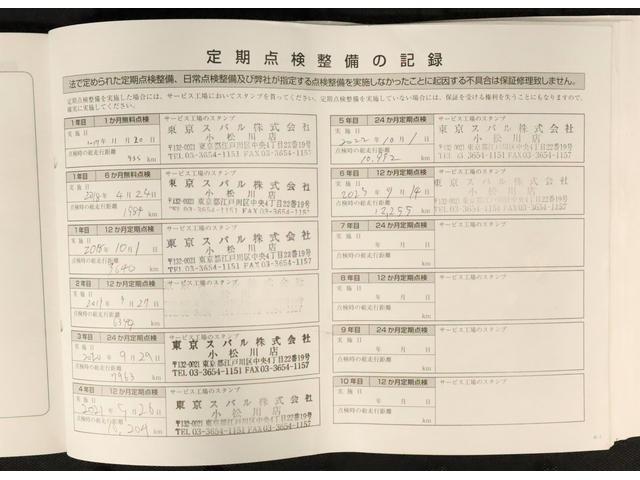 定期点検整備の記録
法で定められた定期点検整備、日常点検整備及び弊社が指定する点検整備を実施しなかったことに起因する不具合は保証修理致しません。
定期点検整備を実施した場合には、サービス工場においてスタンプを貰ってください。定期点検整備を実施していない場合には、保証を受ける権利を失うことにもなりますので、
確実に実施してください。
1年目 1か月無料点検 サービス工場のスタンプ
実施日
年 11月 20日
点検時の総走行距離
km
東京スバル株式会社
小松川店
〒132-0021 東京都江戸川区中央4丁目22番19号
TEL 03-3654-1151 FAX 03-3654-1157
1年目 6か月無料点検 サービス工場のスタンプ
実施日
2018年 4月 24日
点検時の総走行距離
1984 km
東京スバル株式会社
小松川店
〒132-0021 東京都江戸川区中央4丁目22番19号
TEL 03-3654-1151 FAX 03-3654-1157
1年目 12か月定期点検 サービス工場のスタンプ
実施日
2018年 10月 1日
点検時の総走行距離
3640 km
東京スバル株式会社
小松川店
〒132-0021 東京都江戸川区中央4丁目22番19号
TEL 03-3654-1151 FAX 03-3654-1157
2年目 12か月定期点検 サービス工場のスタンプ
実施日
2019年 9月 27日
点検時の総走行距離
km
3年目 24か月定期点検 サービス工場のスタンプ
実施日
2020年 9月 29日
点検時の総走行距離
7963 km
東京スバル株式会社
小松川店
〒132-0021 東京都江戸川区中央4丁目22番19号
TEL 03-3654-1151 FAX 03-3654-1157
4年目 12か月定期点検 サービス工場のスタンプ
実施日
2021年 9月 26日
点検時の総走行距離
10,204 km
東京スバル株式会社
小松川店
〒132-0021 東京都江戸川区中央4丁目22番19号
TEL 03-3654-1151 FAX 03-3654-1157
5年目 24か月定期点検 サービス工場のスタンプ
実施日
2022年 10月 1日
点検時の総走行距離
10,992 km
東京スバル株式会社
小松川店
〒132-0021 東京都江戸川区中央4丁目22番19号
TEL 03-3654-1151 FAX 03-3654-1157
6年目 12か月定期点検 サービス工場のスタンプ
実施日
2023年 9月 14日
点検時の総走行距離
12,255 km
東京スバル株式会社
小松川店
〒132-0021 東京都江戸川区中央4丁目22番19号
TEL 03-3654-1151 FAX 03-3654-1157
7年目 24か月定期点検 サービス工場のスタンプ
実施日
年 月 日
点検時の総走行距離
km
8年目 12か月定期点検 サービス工場のスタンプ
実施日
年 月 日
点検時の総走行距離
km
9年目 24か月定期点検 サービス工場のスタンプ
実施日
年 月 日
点検時の総走行距離
km
10年目 12か月定期点検 サービス工場のスタンプ
実施日
年 月 日
点検時の総走行距離
km